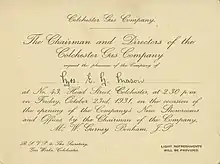 Colchester Gas Company.
The Chairman and Directors of the
Colchester Gas Company
request the pleasure of the Company of
Mrs. E. A. Mason
at No. 43, Head Street, Colchester, at 2.30 p.m.
on Friday, October 23rd, 1931, on the occasion of
the opening of the Company's New Showrooms
and Offices by the Chairman of the Company,
Mr. W. Gurney Benham, J.P.
R.S.V.P. to The Secretary,
Gas Works, Colchester.
LIGHT REFRESHMENTS
WILL BE PROVIDED